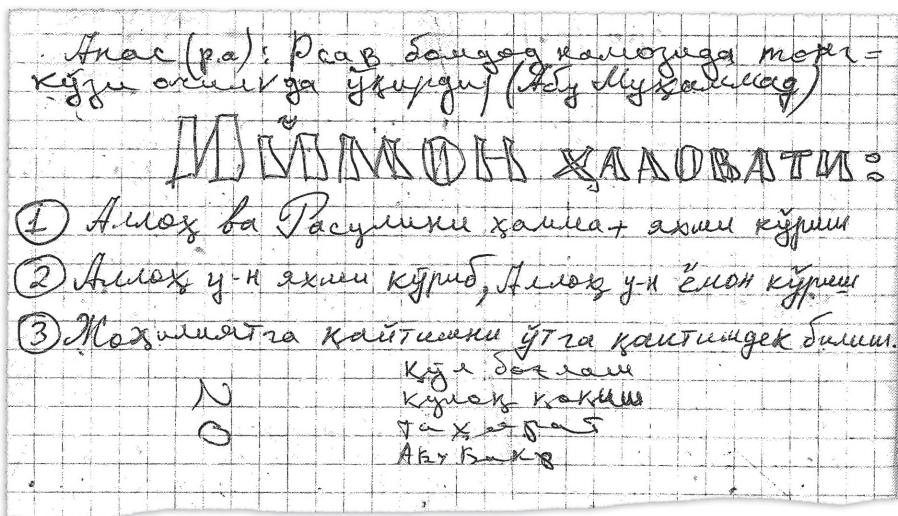 Анас (р.а): Расав бомдод намозида тонг=
кўзи очилганда ўқирди (Абу Муҳаммад)
ИЙМОН ҲАЛОВАТИ:
① Аллоҳ ва Расулини ҳамма+ яхши кўриш
② Аллоҳ у-н яхши кўриб, Аллоҳ у-н ёмон кўриш
③ Жоҳилиятга қайтишни ўтга қайтишдек билиш.
Қўл боғлаш
N қулоқ қоқиш
О таҳорат
Абу Бакр